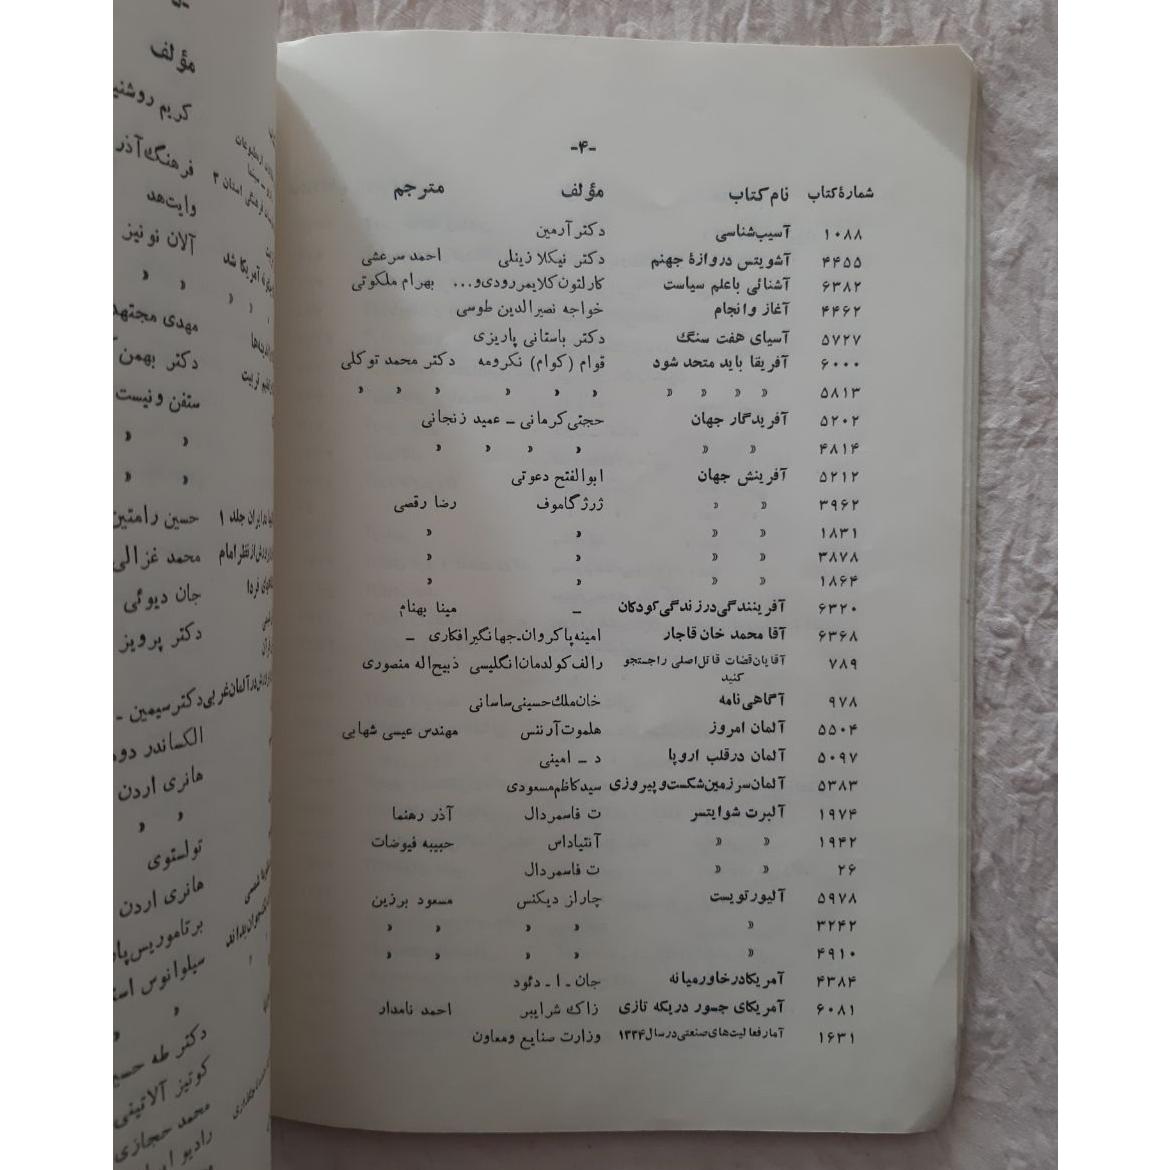 -۴-
شمارهٔ کتاب نام کتاب مؤلف مترجم
۱۰۸۸ آسیب‌شناسی دکتر آرمین
۴۴۵۵ آشویتس دروازهٔ جهنم دکتر نیکلا زینلی احمد سرعشی
۶۳۸۲ آشنائی باعلم سیاست کارلتون کلایمر رودی و... بهرام ملکوتی
۴۴۶۲ آغاز و انجام خواجه نصیرالدین طوسی
۵۷۲۷ آسیای هفت سنگ دکتر باستانی پاریزی
۶۰۰۰ آفریقا باید متحد شود قوام (کوام) نکرومه دکتر محمد توکلی
۵۸۱۳ » » » » » » » » » »
۵۲۰۲ آفریدگار جهان حجتی کرمانی - عمید زنجانی
۴۸۱۴ » » » » » »
۵۲۱۲ آفرینش جهان ابوالفتح دعوتی
۳۹۶۲ » » ژرژ گاموف رضا رقصی
۱۸۳۱ » » » »
۳۸۷۸ » » » »
۱۸۶۴ » » » »
۶۳۲۰ آفرینندگی درزندگی کودکان - مینا بهنام
۶۳۶۸ آقا محمد خان قاجار امینه پاکروان-جهانگیر افکاری -
۷۸۹ آقایان قضات قاتل اصلی راجستجو کنید رالف کولدمان انگلیسی ذبیح‌اله منصوری
۹۷۸ آگاهی نامه خان‌ملک حسینی ساسانی
۵۵۰۴ آلمان امروز هلموت آرنتس مهندس عیسی شهابی
۵۰۹۷ آلمان درقلب اروپا د - امینی
۵۳۸۳ آلمان سرزمین شکست و پیروزی سیدکاظم مسعودی
۱۹۷۴ آلبرت شوایتسر ت فاسمردال آذر رهنما
۱۹۴۲ » » آنتیاداس حبیبه فیوضات
۲۶ » » ت فاسمردال
۵۹۷۸ آلیورتویست چارلز دیکنس مسعود برزین
۳۲۴۲ » » » » »
۴۹۱۰ » » » » »
۴۳۸۴ آمریکا در خاورمیانه جان - ا - دئود
۶۰۸۱ آمریکای جسور در یکه تازی ژاک شرایبر احمد نامدار
۱۶۳۱ آمار فعالیت‌های صنعتی درسال ۱۳۳۴ وزارت صنایع و معاون
مؤلف
کریم
فرهنگ آذر
وایت‌هد
آلان نو نیز
» »
مهدی
دکتر بهمن
ستفن و نیست
» »
» »
جلد ۱ حسین رامتین
ازنظر امام محمد غزالی
فردا جان دیوئی
دکتر پرویز
درآلمان غربی دکتر سیمین -
الکساندر
هانری اردن
» »
تولستوی
هانری اردن
برتاموریس
سیلوانوس
»
دکتر طه
کوتیز آلاتینی
محمد حجازی
رادیو